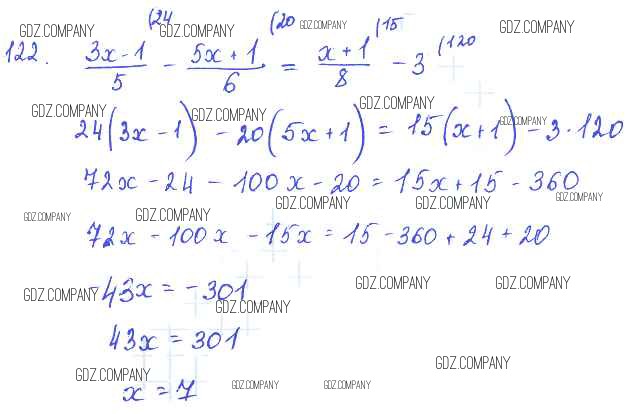 GDZ.COMPANY (24 GDZ.COMPANY (20 GDZ.COMPANY (15 GDZ.COMPANY
122. (3x - 1)/5 - (5x + 1)/6 = (x + 1)/8 - 3 (120
GDZ.COMPANY GDZ.COMPANY GDZ.COMPANY GDZ.COMPANY
24(3x - 1) - 20(5x + 1) = 15(x + 1) - 3 · 120
72x - 24 - 100x - 20 = 15x + 15 - 360
GDZ.COMPANY GDZ.COMPANY GDZ.COMPANY GDZ.COMPANY GDZ.COMPANY
72x - 100x - 15x = 15 - 360 + 24 + 20
GDZ.COMPANY GDZ.COMPANY
-43x = -301
GDZ.COMPANY GDZ.COMPANY
43x = 301
GDZ.COMPANY GDZ.COMPANY
x = 7
GDZ.COMPANY GDZ.COMPANY